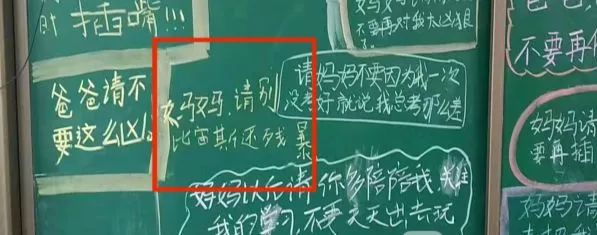 时插嘴!!!
爸爸请不
要这么凶。
妈妈,请别
比宙斯还残暴
请妈妈不要因为我一次
没考好就说我总考那么差
要再对我太凶狠
不要再
妈妈请
要再插
妈妈以后请你多陪陪我,关注
我的学习,不要天天出去玩
妈妈请